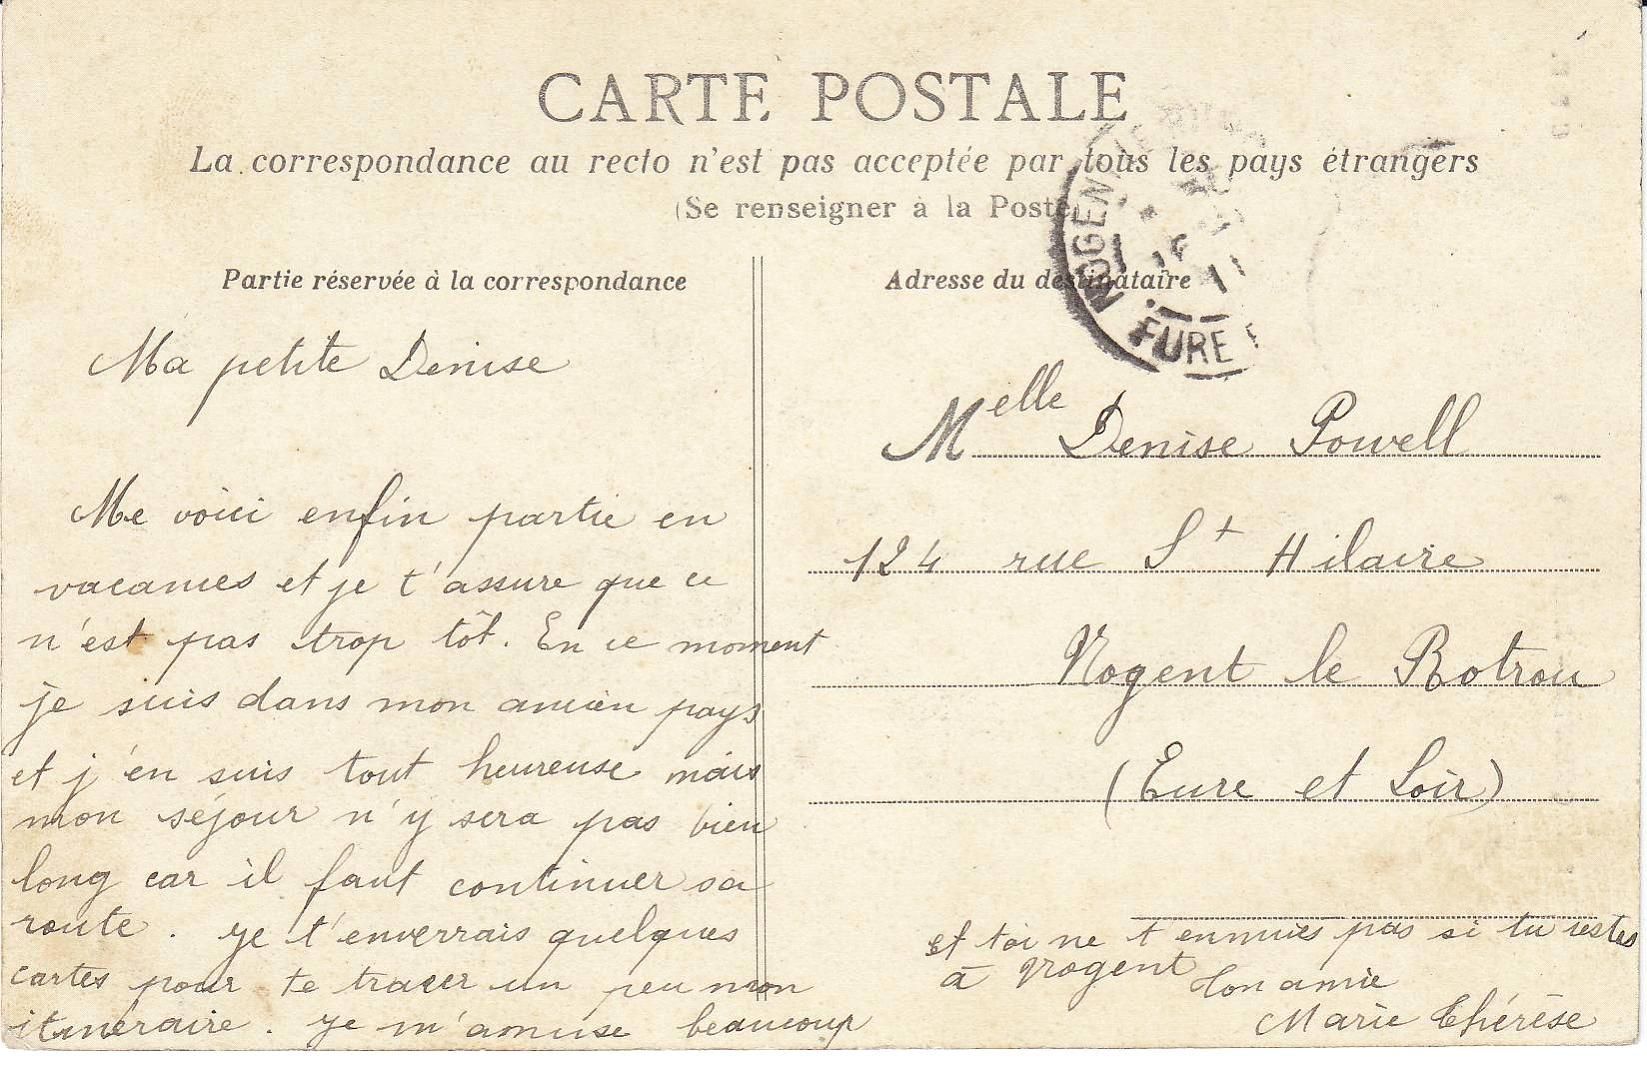 CARTE POSTALE
La correspondance au recto n'est pas acceptée par tous les pays étrangers
(Se renseigner à la Poste)
Partie réservée à la correspondance
Ma petite Denise
Me voici enfin partie en
vacances et je t'assure que ce
n'est pas trop tôt. En ce moment
je suis dans mon ancien pays
et j'en suis tout heureuse mais
mon séjour n'y sera pas bien
long car il faut continuer sa
route. Je t'enverrais quelques
cartes pour te tracer un peu mon
itinéraire. Je m'amuse beaucoup
et toi ne t'ennuies pas si tu restes
à Nogent Ton amie
Marie Thérèse
Adresse du destinataire
Melle Denise Powell
124 rue St Hilaire
Nogent le Rotrou
(Eure et Loir)
NOGEN
EURE